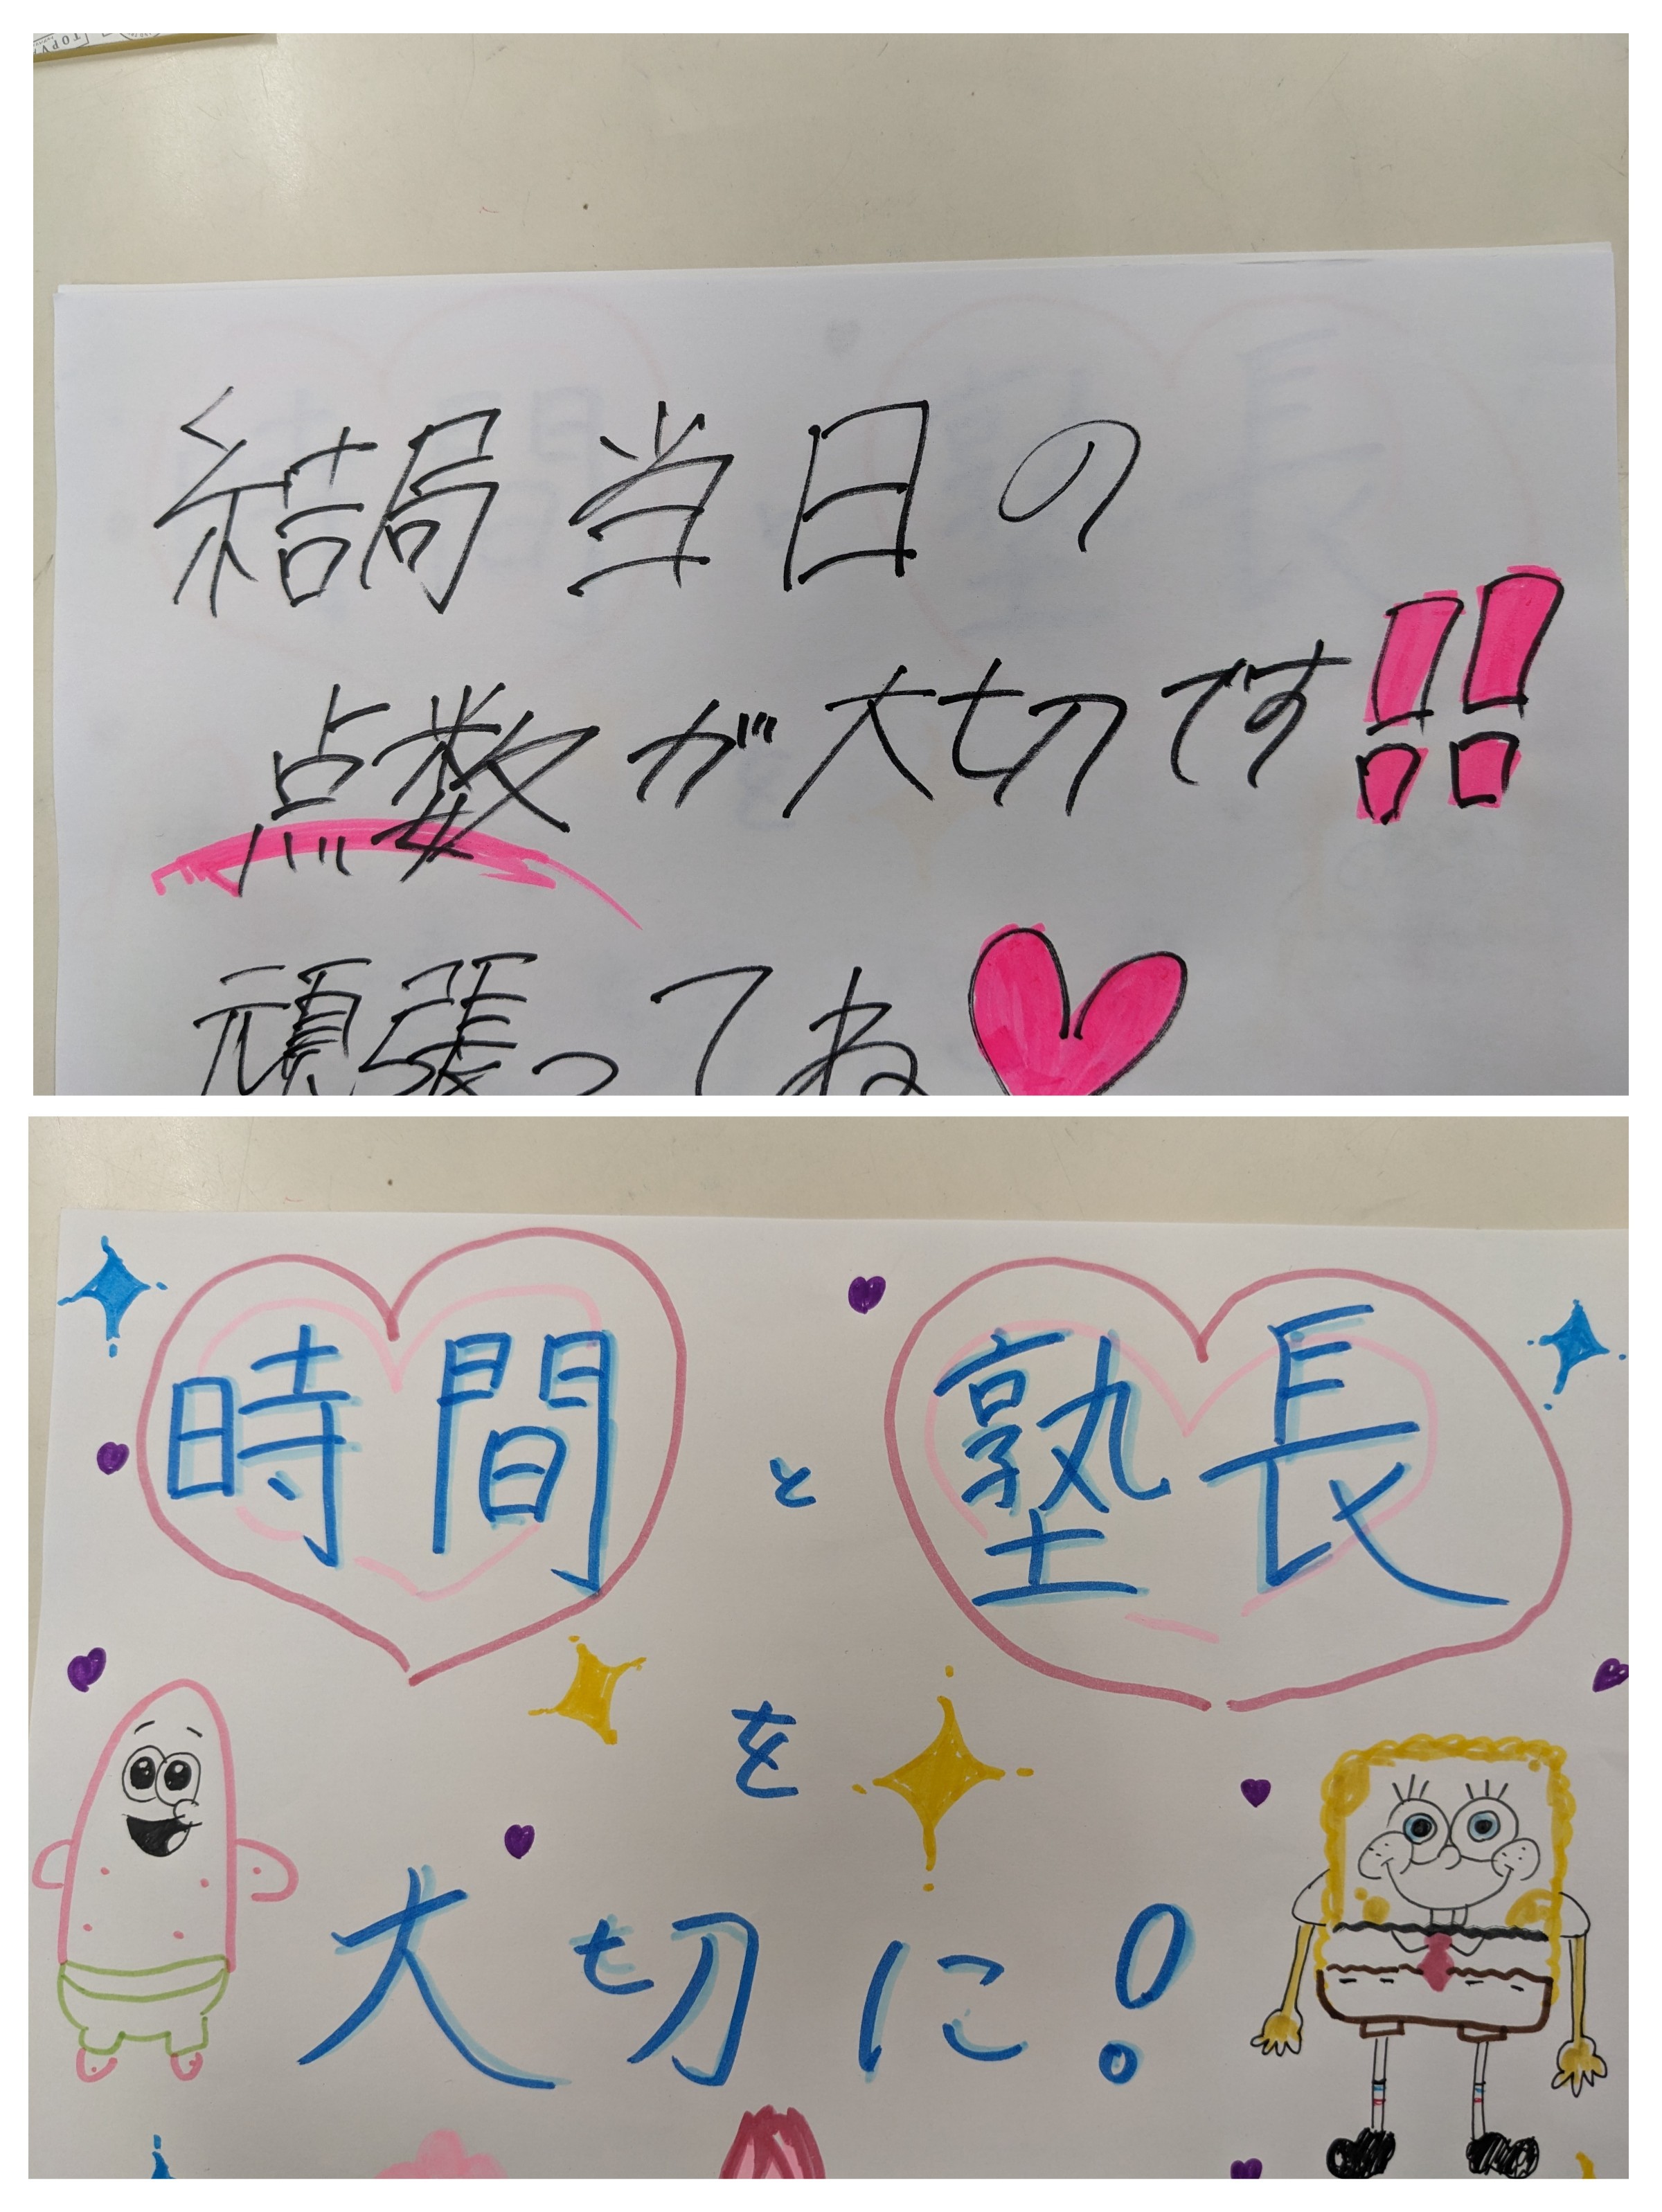 TOPV
結局当日の
点数が大切です!!
頑張ってね
時間と塾長
を
大切に!